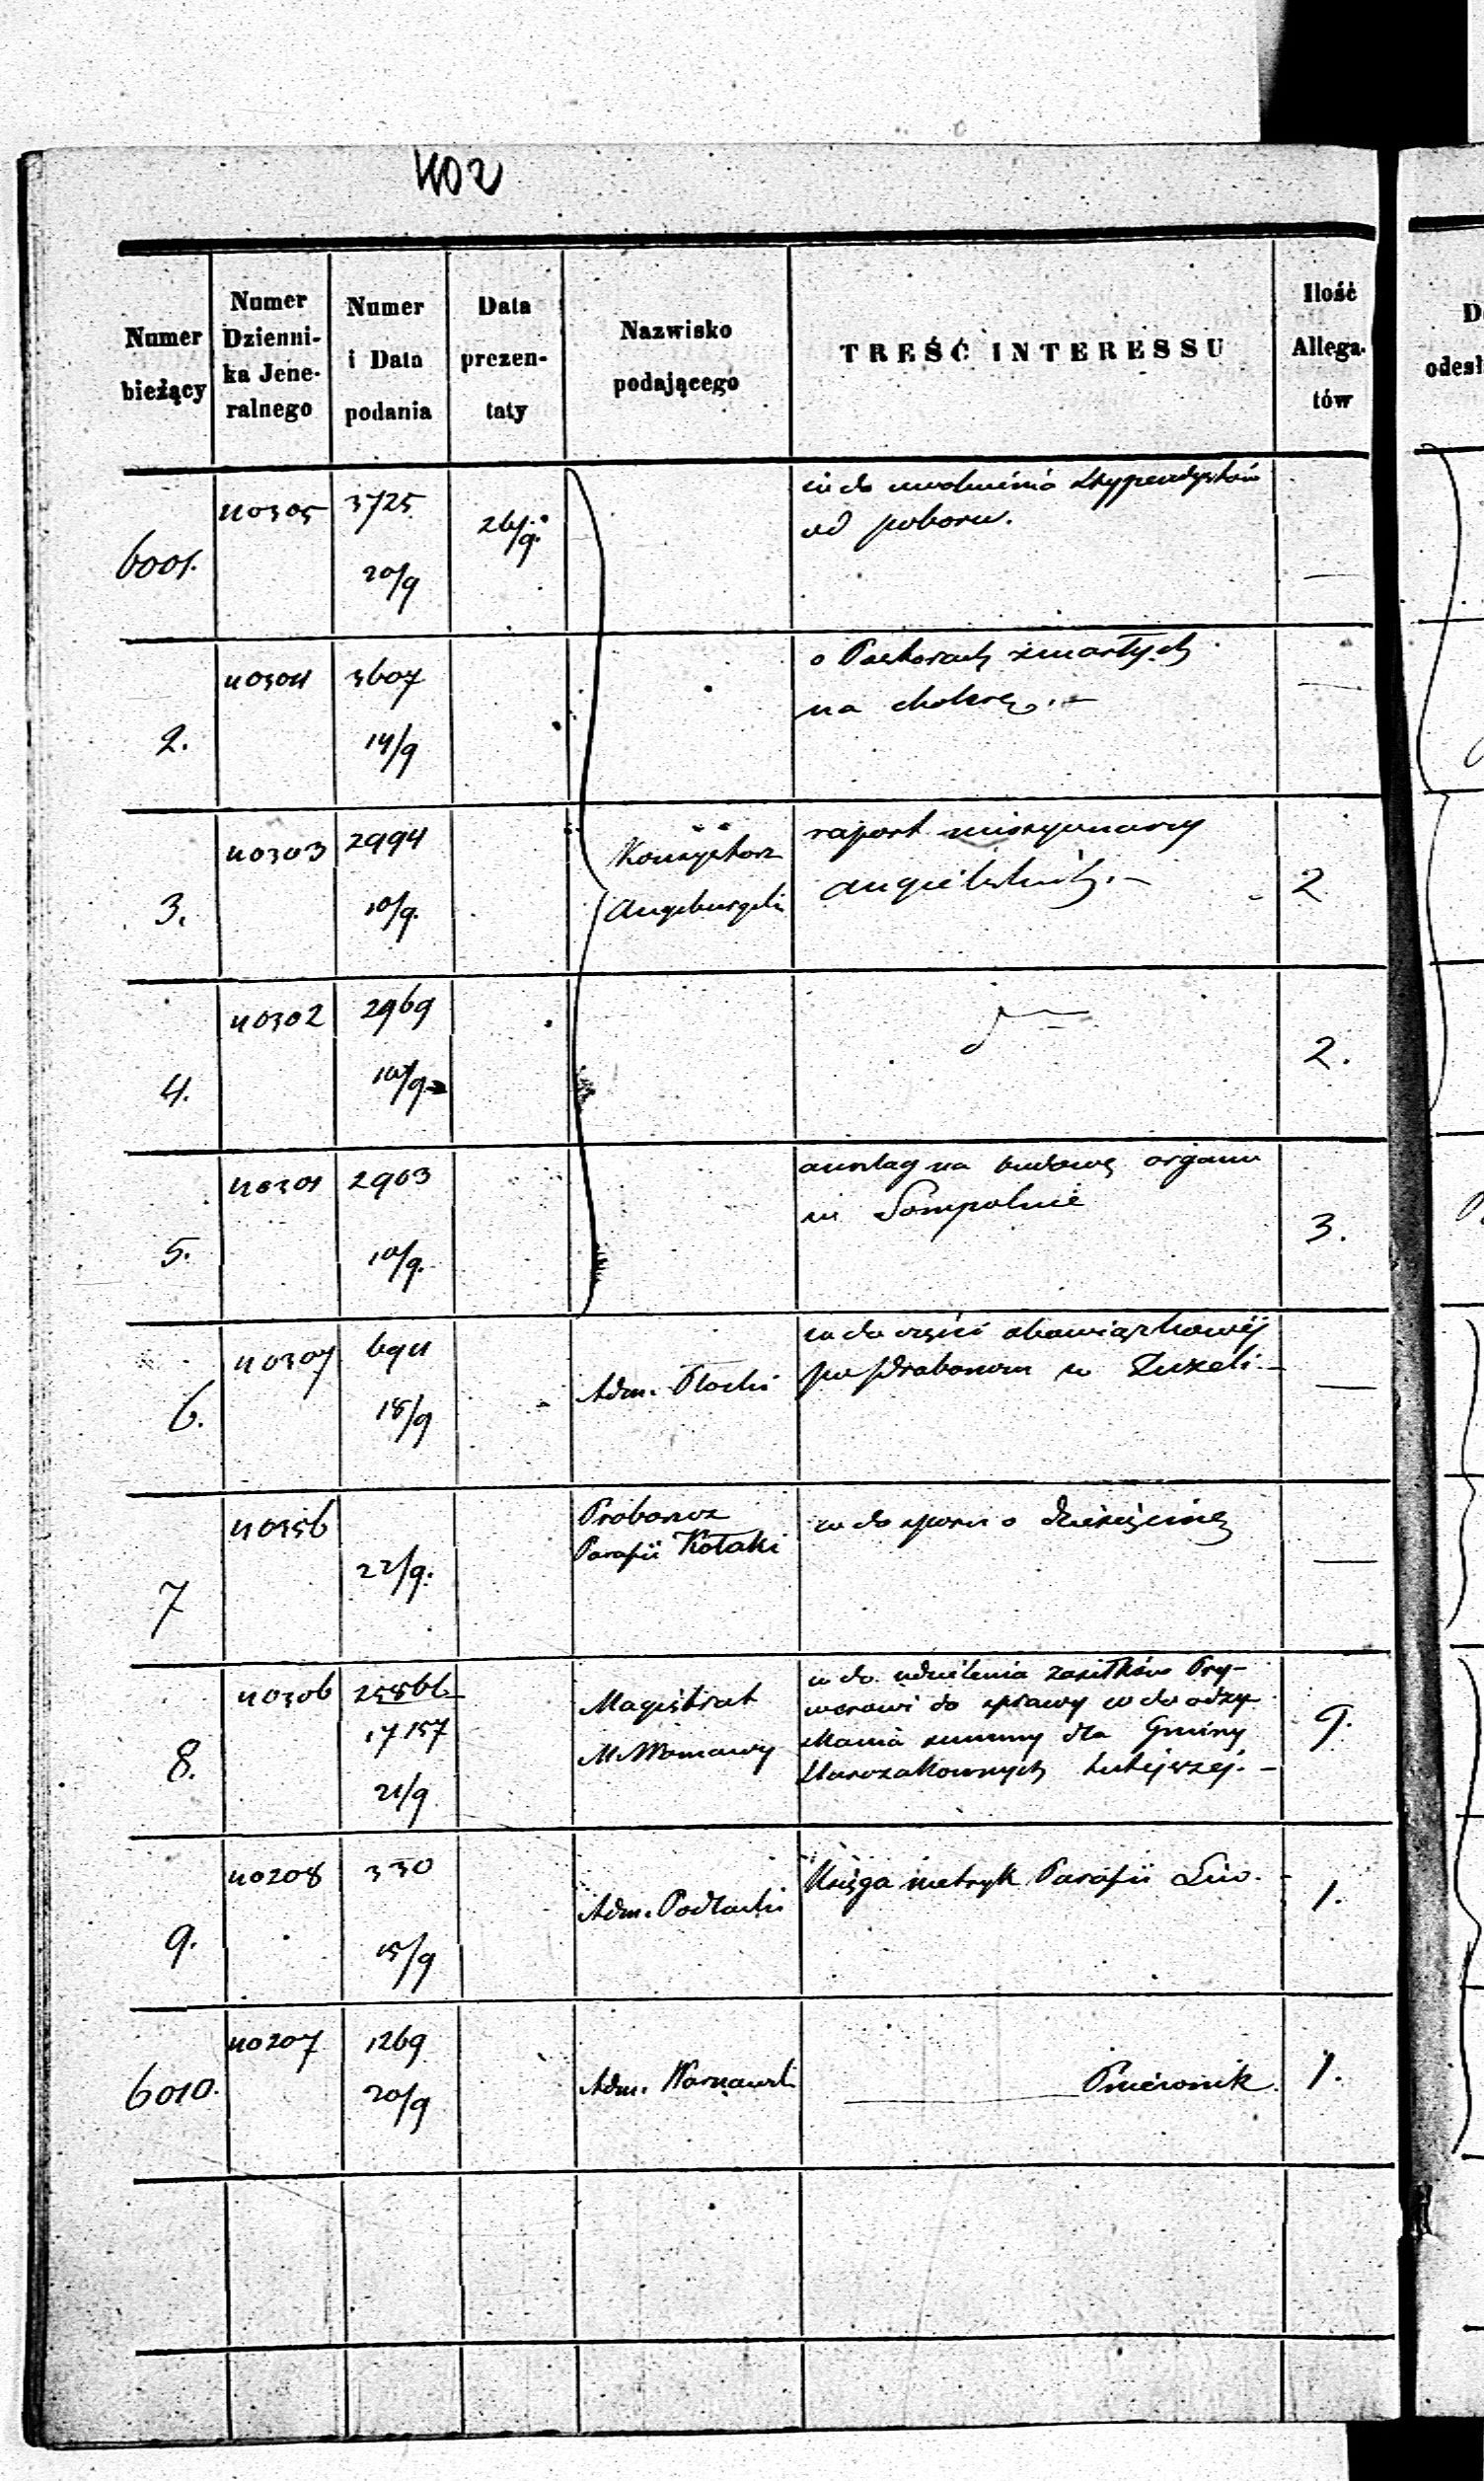 402
Numer bieżący
Numer Dzienni-ka Jene-ralnego
Numer i Data podania
Data prezen-taty
Nazwisko podającego
TREŚĆ INTERESSU
Ilość Allega-tów
6001.
40305
3725
20/9
26/9.
co do uwolnienia stypendystów
od poboru.
—
2.
40304
3607
14/9
o Pastorach zmarłych
na cholerę. —
—
3.
40303
2994
10/9.
Konsystorz
Augsburgski
raport missyonarzy
angielskich. —
2
4.
40302
2969
10/9
2.
5.
40301
2963
10/9.
anszlag na budowę organu
w Sompolnie
3.
6.
40307
694
18/9
Adm. Płocki
co do części obowiązkowéj
w Zuzeli. —
—
7
40356
22/9.
Proboszcz
Parafii Kołaki
co do sporu o dziesięcinę
—
8.
40306
17157
21/9
Magistrat
M. Warszawy
co do udzielenia zasiłków Pry-
werowi do sprawy co do odzy-
skania summy dla Gminy
Starozakonnych tutejszéj. —
9.
9.
40208
330
15/9
Adm. Podlaski
Księga metryk Parafii Liw.
1.
6010.
40207
1269
20/9
Adm. Warszawski
Pniewnik.
1.